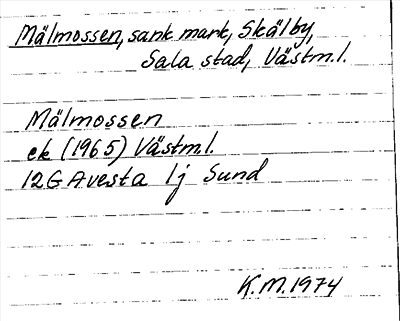 Mälmossen, sank mark, Skälby,
Sala stad, Västm.l.
Mälmossen
ek (1965) Västml.
12G Avesta 1j Sund
K.M. 1974